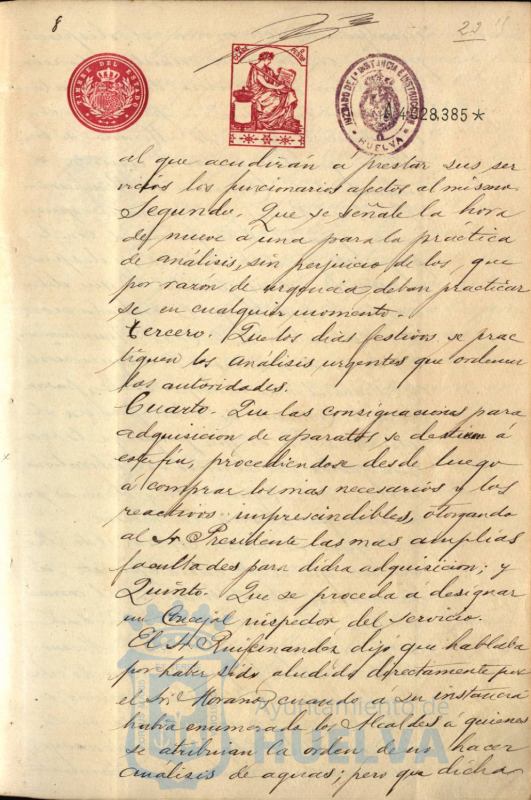 8
22
TIMBRE DEL ESTADO
CLASE
PESETAS
JUZGADO DE 1ª INSTANCIA E INSTRUCCION
HUELVA
A4.028.385*
al que acudirán a prestar sus ser
vicios los funcionarios afectos al mismo.
Segundo. Que se señale la hora
de nueve á una para la práctica
de análisis, sin perjuicio de los, que
por razon de urgencia deban practicar
se en cualquier momento.
Tercero. Que los dias festivos se prac
tiquen los análisis urgentes que ordenen
las autoridades.
Cuarto. Que las consignaciones para
adquisicion de aparatos se destinen á
este fin, procediendose desde luego
á comprar los mas necesarios y los
reactivos imprescindibles, otorgando
al Sr Presidente las mas amplias
facultades para dicha adquisicion; y
Quinto. Que se proceda á designar
un Concejal inspector del servicio.
El Sr Ruifernandez dijó que hablaba
por haber sido aludido directamente por
el Sr. Morano cuando á su instancia
habia enumerado los Alcaldes a quienes
se atribuian la orden de no hacer
análisis de aguas; pero que dicha
Ayuntamiento de
HUELVA